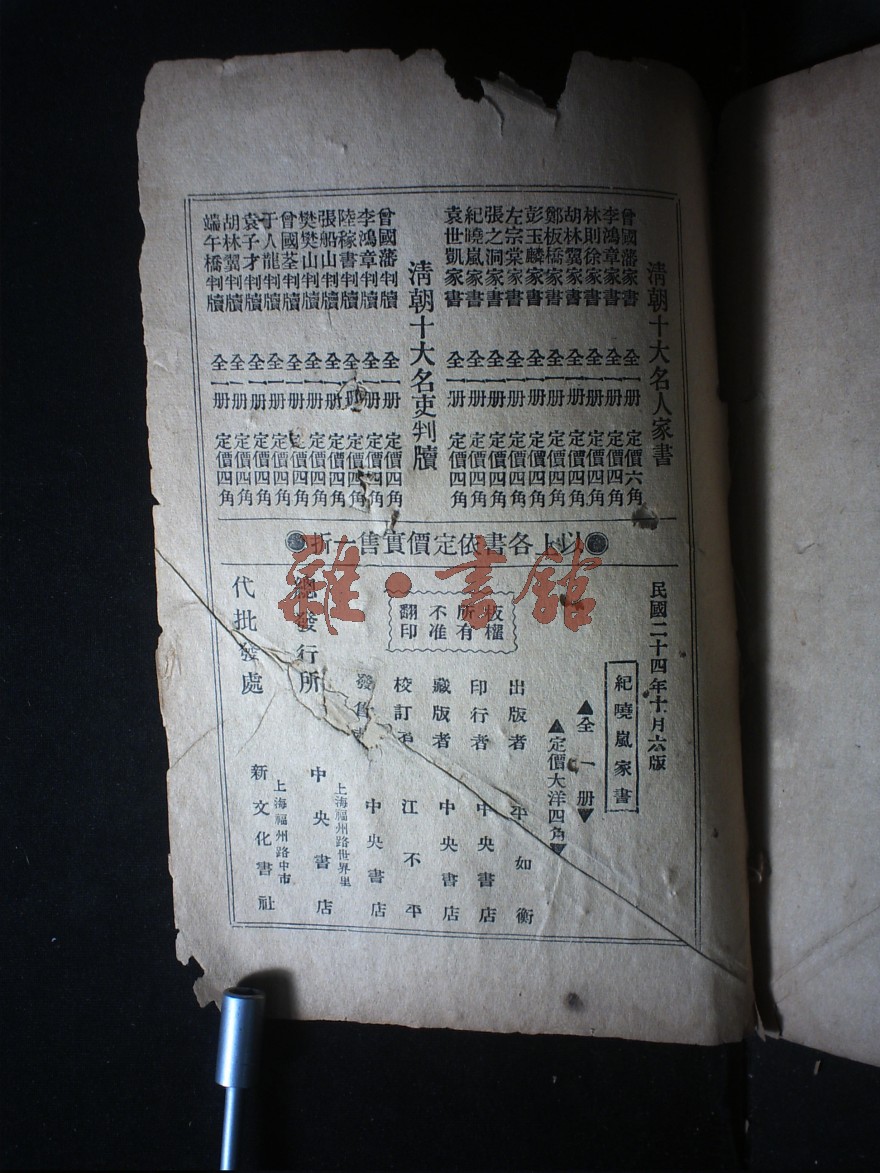 清朝十大名人家書
曾國藩家書 全一册 定價六角
李鴻章家書 全一册 定價四角
林則徐家書 全一册 定價四角
胡林翼家書 全一册 定價四角
鄭板橋家書 全一册 定價四角
彭玉麟家書 全一册 定價四角
左宗棠家書 全一册 定價四角
張之洞家書 全一册 定價四角
紀曉嵐家書 全一册 定價四角
袁世凱家書 全一册 定價四角
清朝十大名吏判牘
曾國藩判牘 全一册 定價四角
李鴻章判牘 全一册 定價四角
陸稼書判牘 全一册 定價四角
張船山判牘 全一册 定價四角
樊樊山判牘 全一册 定價四角
曾國荃判牘 全一册 定價四角
于人龍判牘 全一册 定價四角
袁子才判牘 全一册 定價四角
胡林翼判牘 全一册 定價四角
端午橋判牘 全一册 定價四角
以上各書依定價實售一折
民國二十四年十月六版
紀曉嵐家書
▲全一册▼
▲定價大洋四角▼
出版者 平如衡
印行者 中央書店
藏版者 中央書店
校訂者 江不平
發售 中央書店
板權
所有
不准
翻印
總發行所
上海福州路世界里
中央書店
代批發處
上海福州路中市
新文化書社
雜·書館